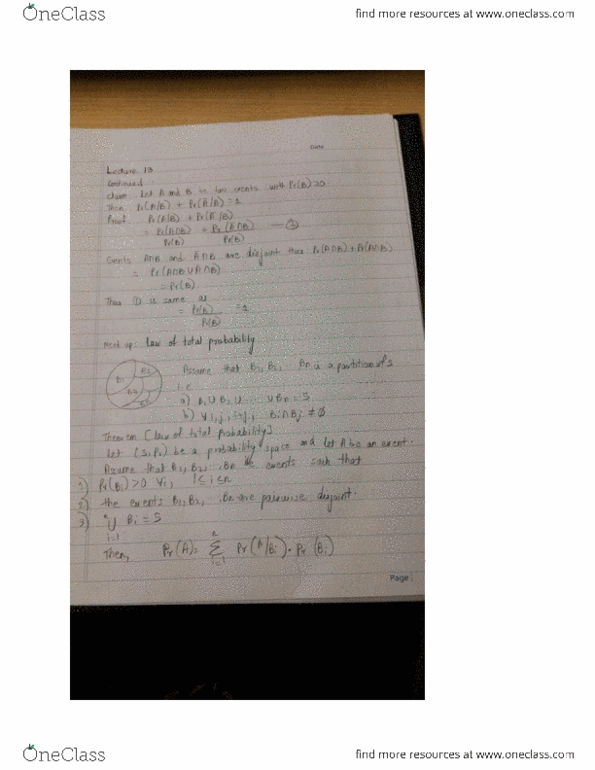 OneClass
find more resources at www.oneclass.com
Date
Lecture 13
Continued
Claim: Let A and B be two events with Pr(B)>0.
Then Pr(A|B) + Pr(Ā|B) = 1
Proof Pr(A|B) + Pr(Ā|B)
= Pr(A∩B) + Pr(Ā∩B) — ①
Pr(B) Pr(B)
Events A∩B and Ā∩B are disjoint thus Pr(A∩B) + Pr(Ā∩B)
= Pr(A∩B ∪ Ā∩B)
= Pr(B)
Thus ① is same as
= Pr(B) = 1
Pr(B)
Next up: law of total probability
B1 B2 Bn
Assume that B1, B2, Bn is a partition of S
i.e
a) B1 ∪ B2 ∪ ∪ Bn = S
b) ∀ i, j, i≠j, Bi ∩ Bj ≠ ∅
Theorem [law of total probability]
Let (S, Pr) be a probability space and let A be an event.
Assume that B1, B2, Bn events such that
1) Pr(Bi) > 0 ∀i, 1 < i < n
2) the events B1, B2, Bn are pairwise disjoint.
3) n ∪ i=1 Bi = S
Then, Pr(A) = n Σ i=1 Pr(A|Bi) · Pr(Bi)
Page
OneClass
find more resources at www.oneclass.com